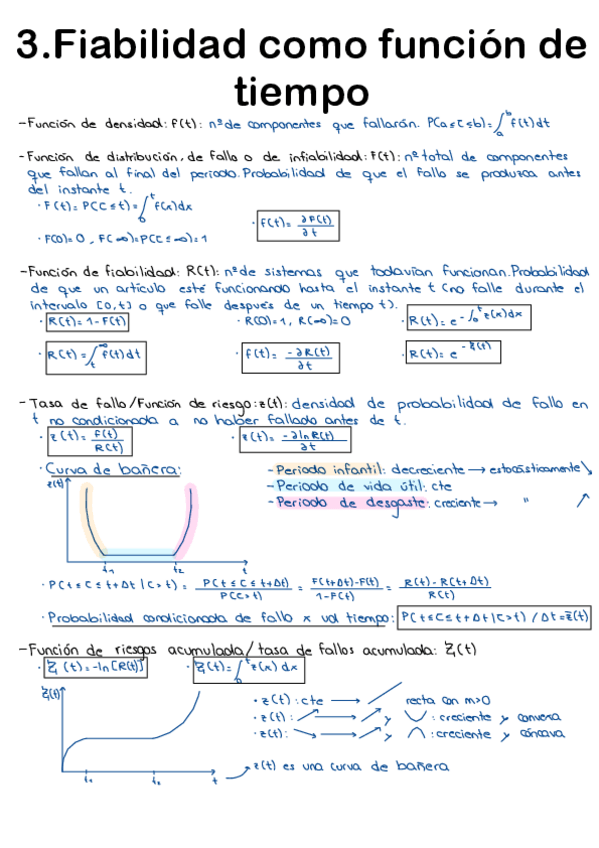 3.Fiabilidad como función de
tiempo
-Función de densidad: f(t): nº de componentes que fallarán. P(a≤C≤b)=∫ₐᵇ f(t)dt
-Función de distribución, de fallo o de infiabilidad: F(t): nº total de componentes
que fallan al final del periodo. Probabilidad de que el fallo se produzca antes
del instante t.
· F(t)=P(C≤t)=∫₀ᵗ f(x)dx
· f(t)= ∂F(t)/∂t
· F(0)=0, F(∞)=P(C≤∞)=1
-Función de fiabilidad: R(t): nº de sistemas que todavían funcionan. Probabilidad
de que un artículo esté funcionando hasta el instante t (no falle durante el
intervalo [0,t] o que falle después de un tiempo t).
· R(t)=1-F(t) · R(0)=1, R(∞)=0 · R(t)= e^(-∫₀ᵗ z(x)dx)
· R(t)=∫ₜ^∞ f(t)dt · f(t)= -∂R(t)/∂t · R(t)= e^(-Z(t))
-Tasa de fallo/Función de riesgo: z(t): densidad de probabilidad de fallo en
t no condicionada a no haber fallado antes de t.
· z(t)= f(t)/R(t) · z(t)= -∂lnR(t)/∂t
· Curva de bañera:
z(t)
t₁ t₂ t
-Periodo infantil: decreciente → estocásticamente ↘
-Periodo de vida útil: cte
-Periodo de desgaste: creciente → " ↗
· P(t≤C≤t+Δt|C>t) = P(t≤C≤t+Δt)/P(C>t) = F(t+Δt)-F(t)/1-F(t) = R(t)-R(t+Δt)/R(t)
· Probabilidad condicionada de fallo x ud tiempo: P(t≤C≤t+Δt|C>t)/Δt=z(t)
-Función de riesgos acumulada/tasa de fallos acumulada: Z(t)
· Z(t)=-ln[R(t)] · Z(t)=∫₀ᵗ z(x)dx
Z(t)
t₁ t₂ t
· z(t): cte → recta con m>0
· z(t): ↗ → ↗ y ∪: creciente y convexa
· z(t): ↘ → ↗ y ∩: creciente y cóncava
z(t) es una curva de bañera